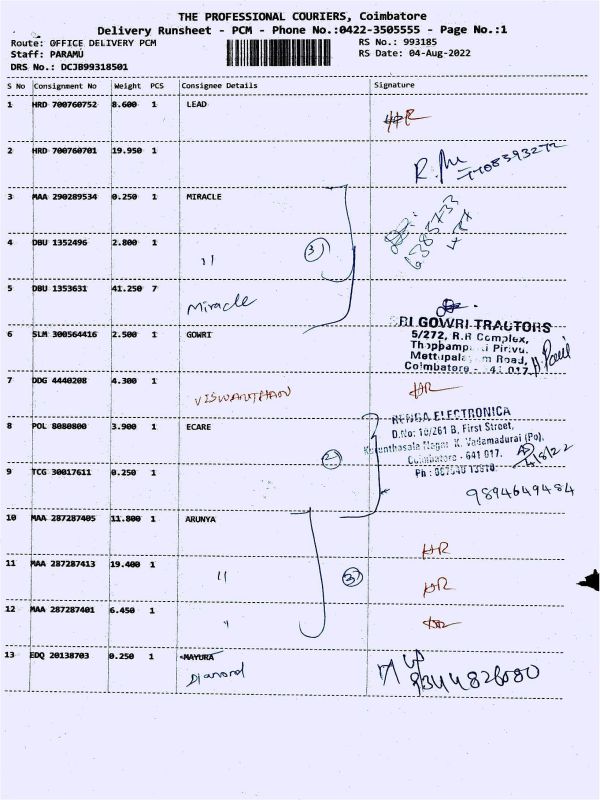 THE PROFESSIONAL COURIERS, Coimbatore
Delivery Runsheet - PCM - Phone No.:0422-3505555 - Page No.:1
Route: OFFICE DELIVERY PCM
RS No.: 993185
Staff: PARAMU
RS Date: 04-Aug-2022
DRS No.: DCJB99318501
S No Consignment No Weight PCS Consignee Details Signature
1 HRD 700760752 8.600 1 LEAD
HR
2 HRD 700760701 19.950 1
7708393272
3 MAA 290289534 0.250 1 MIRACLE
4 DBU 1352496 2.800 1
"
3
5 DBU 1353631 41.250 7
Miracle
6 SLM 300564416 2.500 1 GOWRI
SRI GOWRI TRACTORS
5/272, R.R Complex,
Pirivu,
Road,
Coimbatore - 641 017
7 DDG 4440208 4.300 1
VISWANTHAN
HR
8 POL 8080800 3.900 1 ECARE
RENGA ELECTRONICA
D.No: 10/261 B, First Street,
Nagar K. Vadamadurai (Po),
Coimbatore - 641 017.
4/8/22
2
9 TCG 30017611 0.250 1
9894649484
10 MAA 287287405 11.800 1 ARUNYA
HR
11 MAA 287287413 19.400 1
"
3
HR
12 MAA 287287401 6.450 1
"
HR
13 EDQ 20138703 0.250 1 MAYURA
Diamond
9344826080